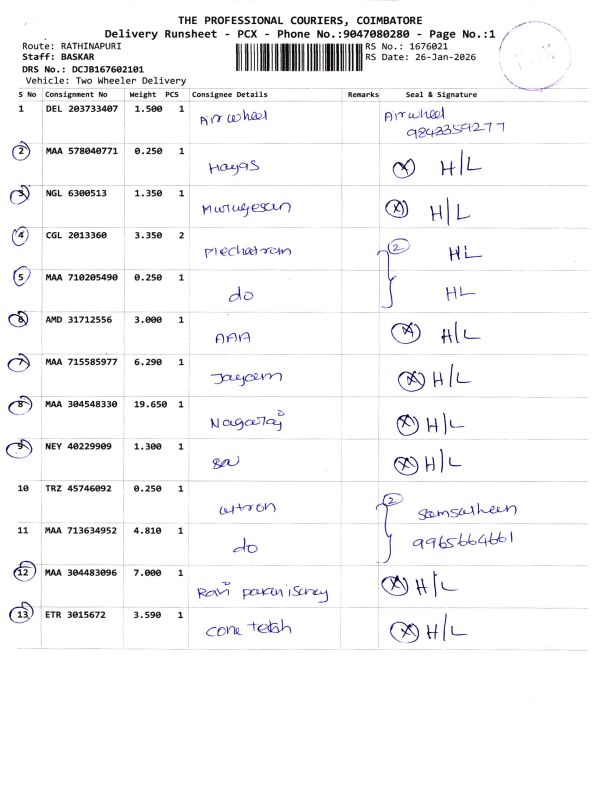 THE PROFESSIONAL COURIERS, COIMBATORE
Delivery Runsheet - PCX - Phone No.:9047080280 - Page No.:1
Route: RATHINAPURI RS No.: 1676021
Staff: BASKAR RS Date: 26-Jan-2026
DRS No.: DCJB167602101
Vehicle: Two Wheeler Delivery
S No Consignment No Weight PCS Consignee Details Remarks Seal & Signature
1 DEL 203733407 1.500 1 Airwheel Airwheel
9843359277
2 MAA 578040771 0.250 1 Hayas X H/L
3 NGL 6300513 1.350 1 Murugesan X H/L
4 CGL 2013360 3.350 2 Mechatron 2 HL
5 MAA 710205490 0.250 1 do HL
6 AMD 31712556 3.000 1 AAA X H/L
7 MAA 715585977 6.290 1 Jaycem X H/L
8 MAA 304548330 19.650 1 Nagaraj X H/L
9 NEY 40229909 1.300 1 Sai X H/L
10 TRZ 45746092 0.250 1 2
11 MAA 713634952 4.810 1 do 9965664661
12 MAA 304483096 7.000 1 Ravi X H/L
13 ETR 3015672 3.590 1 Cone X H/L